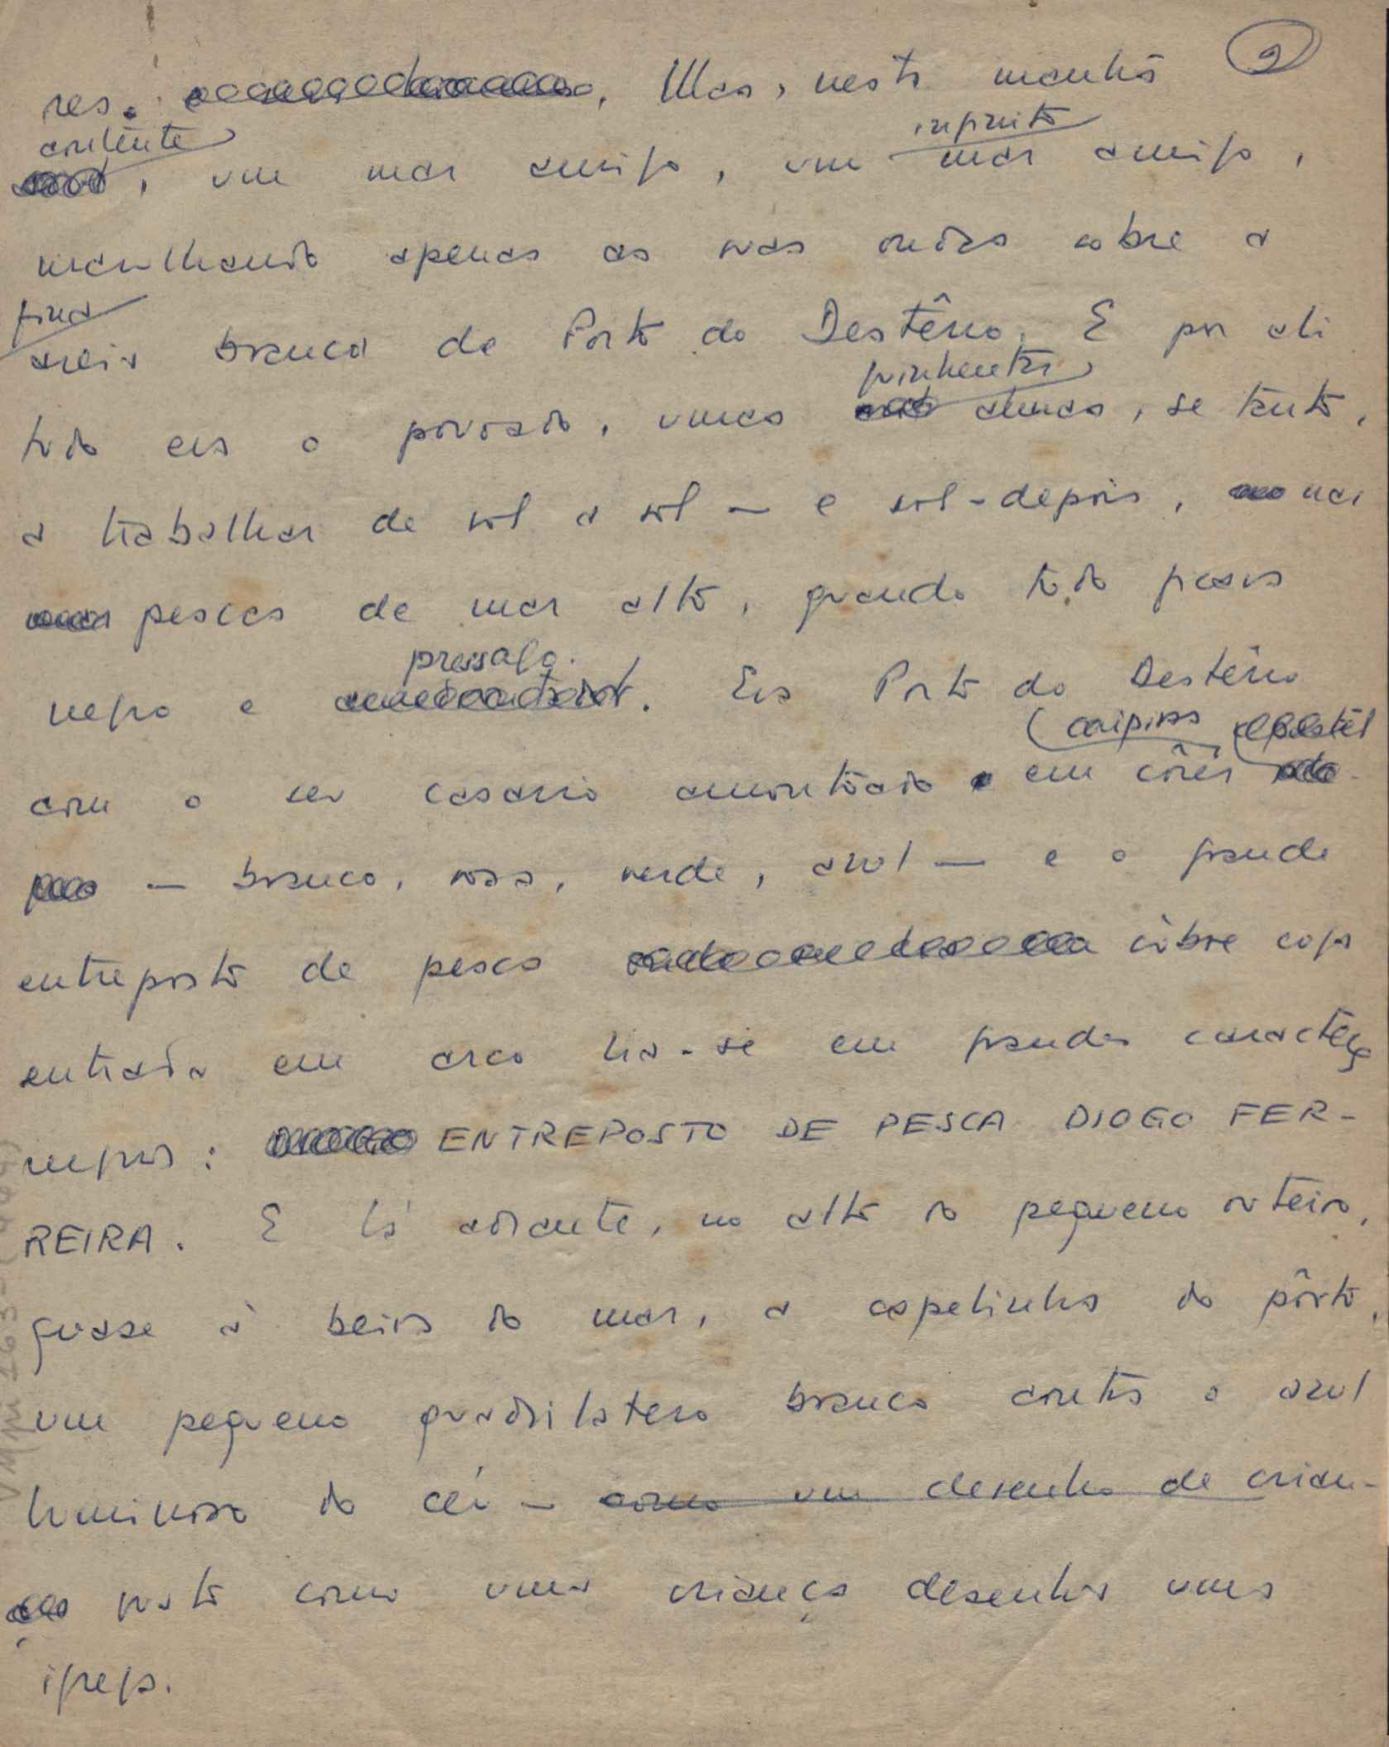 2
res. Mas, nesta manhã
contente infinito
, um mar amigo, um mar amigo,
marulhando apenas as suas ondas sobre a
fina
areia branca de Porto do Destêrro. E por ali
quinhentas
tudo era o povoado, umas almas, se tanto,
a trabalhar de sol a sol — e sol-depois, nas
pescas de mar alto, quando tudo ficava
pressago.
negro e . Era Porto do Destêrro
caipiras pastel
com o seu casario amontoado em côres
— branco, rosa, verde, azul — e o grande
entreposto de pesca sôbre cuja
entrada em arco lia-se em grandes caracteres
negros: ENTREPOSTO DE PESCA DIOGO FER-
REIRA. E lá adiante, no alto do pequeno outeiro,
quase à beira do mar, a capelinha do pôrto,
um pequeno quadrilátero branco contra o azul
luminoso do céu — como um desenho de crian-
ça justo como uma criança desenha uma
igreja.